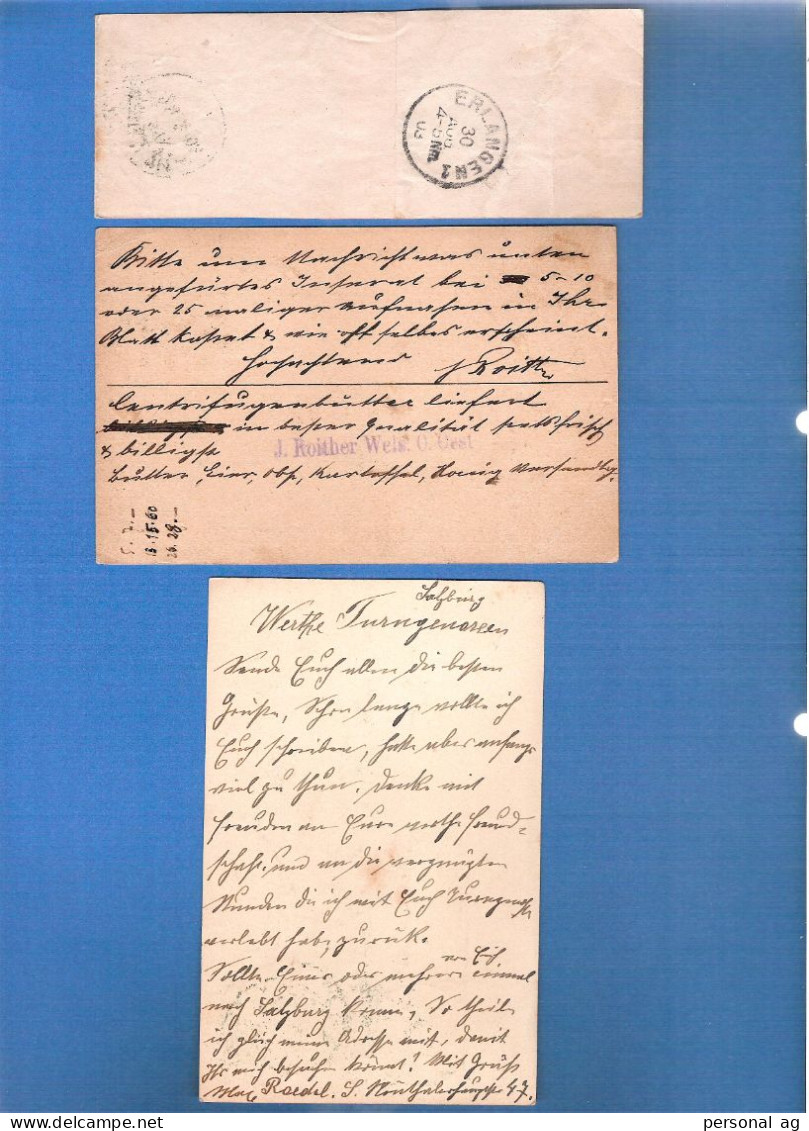 ERLANGEN 1
30
AUG
4-5 NM
03
Bitte um Nachricht was unten
angefürtes Inserat bei 5-10
oder 25 maliger Aufnahmen in Ihr
Blatt kostet & wie oft selbes erscheint.
J. Roither
Centrifugenbutter liefert
in bester Qualität stets frisch
& billigst
J. Roither Wels. O. Oest
Butter, Eier, Obst, Kartoffel, Honig
5. 7.-
15.60
28.-
Salzburg
Werthe Turngenossen
Sende Euch allen die besten
Grüße, Schon lange wollte ich
Euch schreiben, hatte aber anfangs
viel zu thun. Denke mit
Freuden an Eure werthe Freund-
schaft und an die vergnügten
Stunden die ich mit Euch Turngenossen
verlebt habe zurück.
von Euch
Sollte Einer oder mehrere einmal
nach Salzburg kommen, So theile
ich gleich meine Adresse mit, damit
Ihr mich besuchen könnt! Mit Gruß
Max Raedel. 47.
personal ag